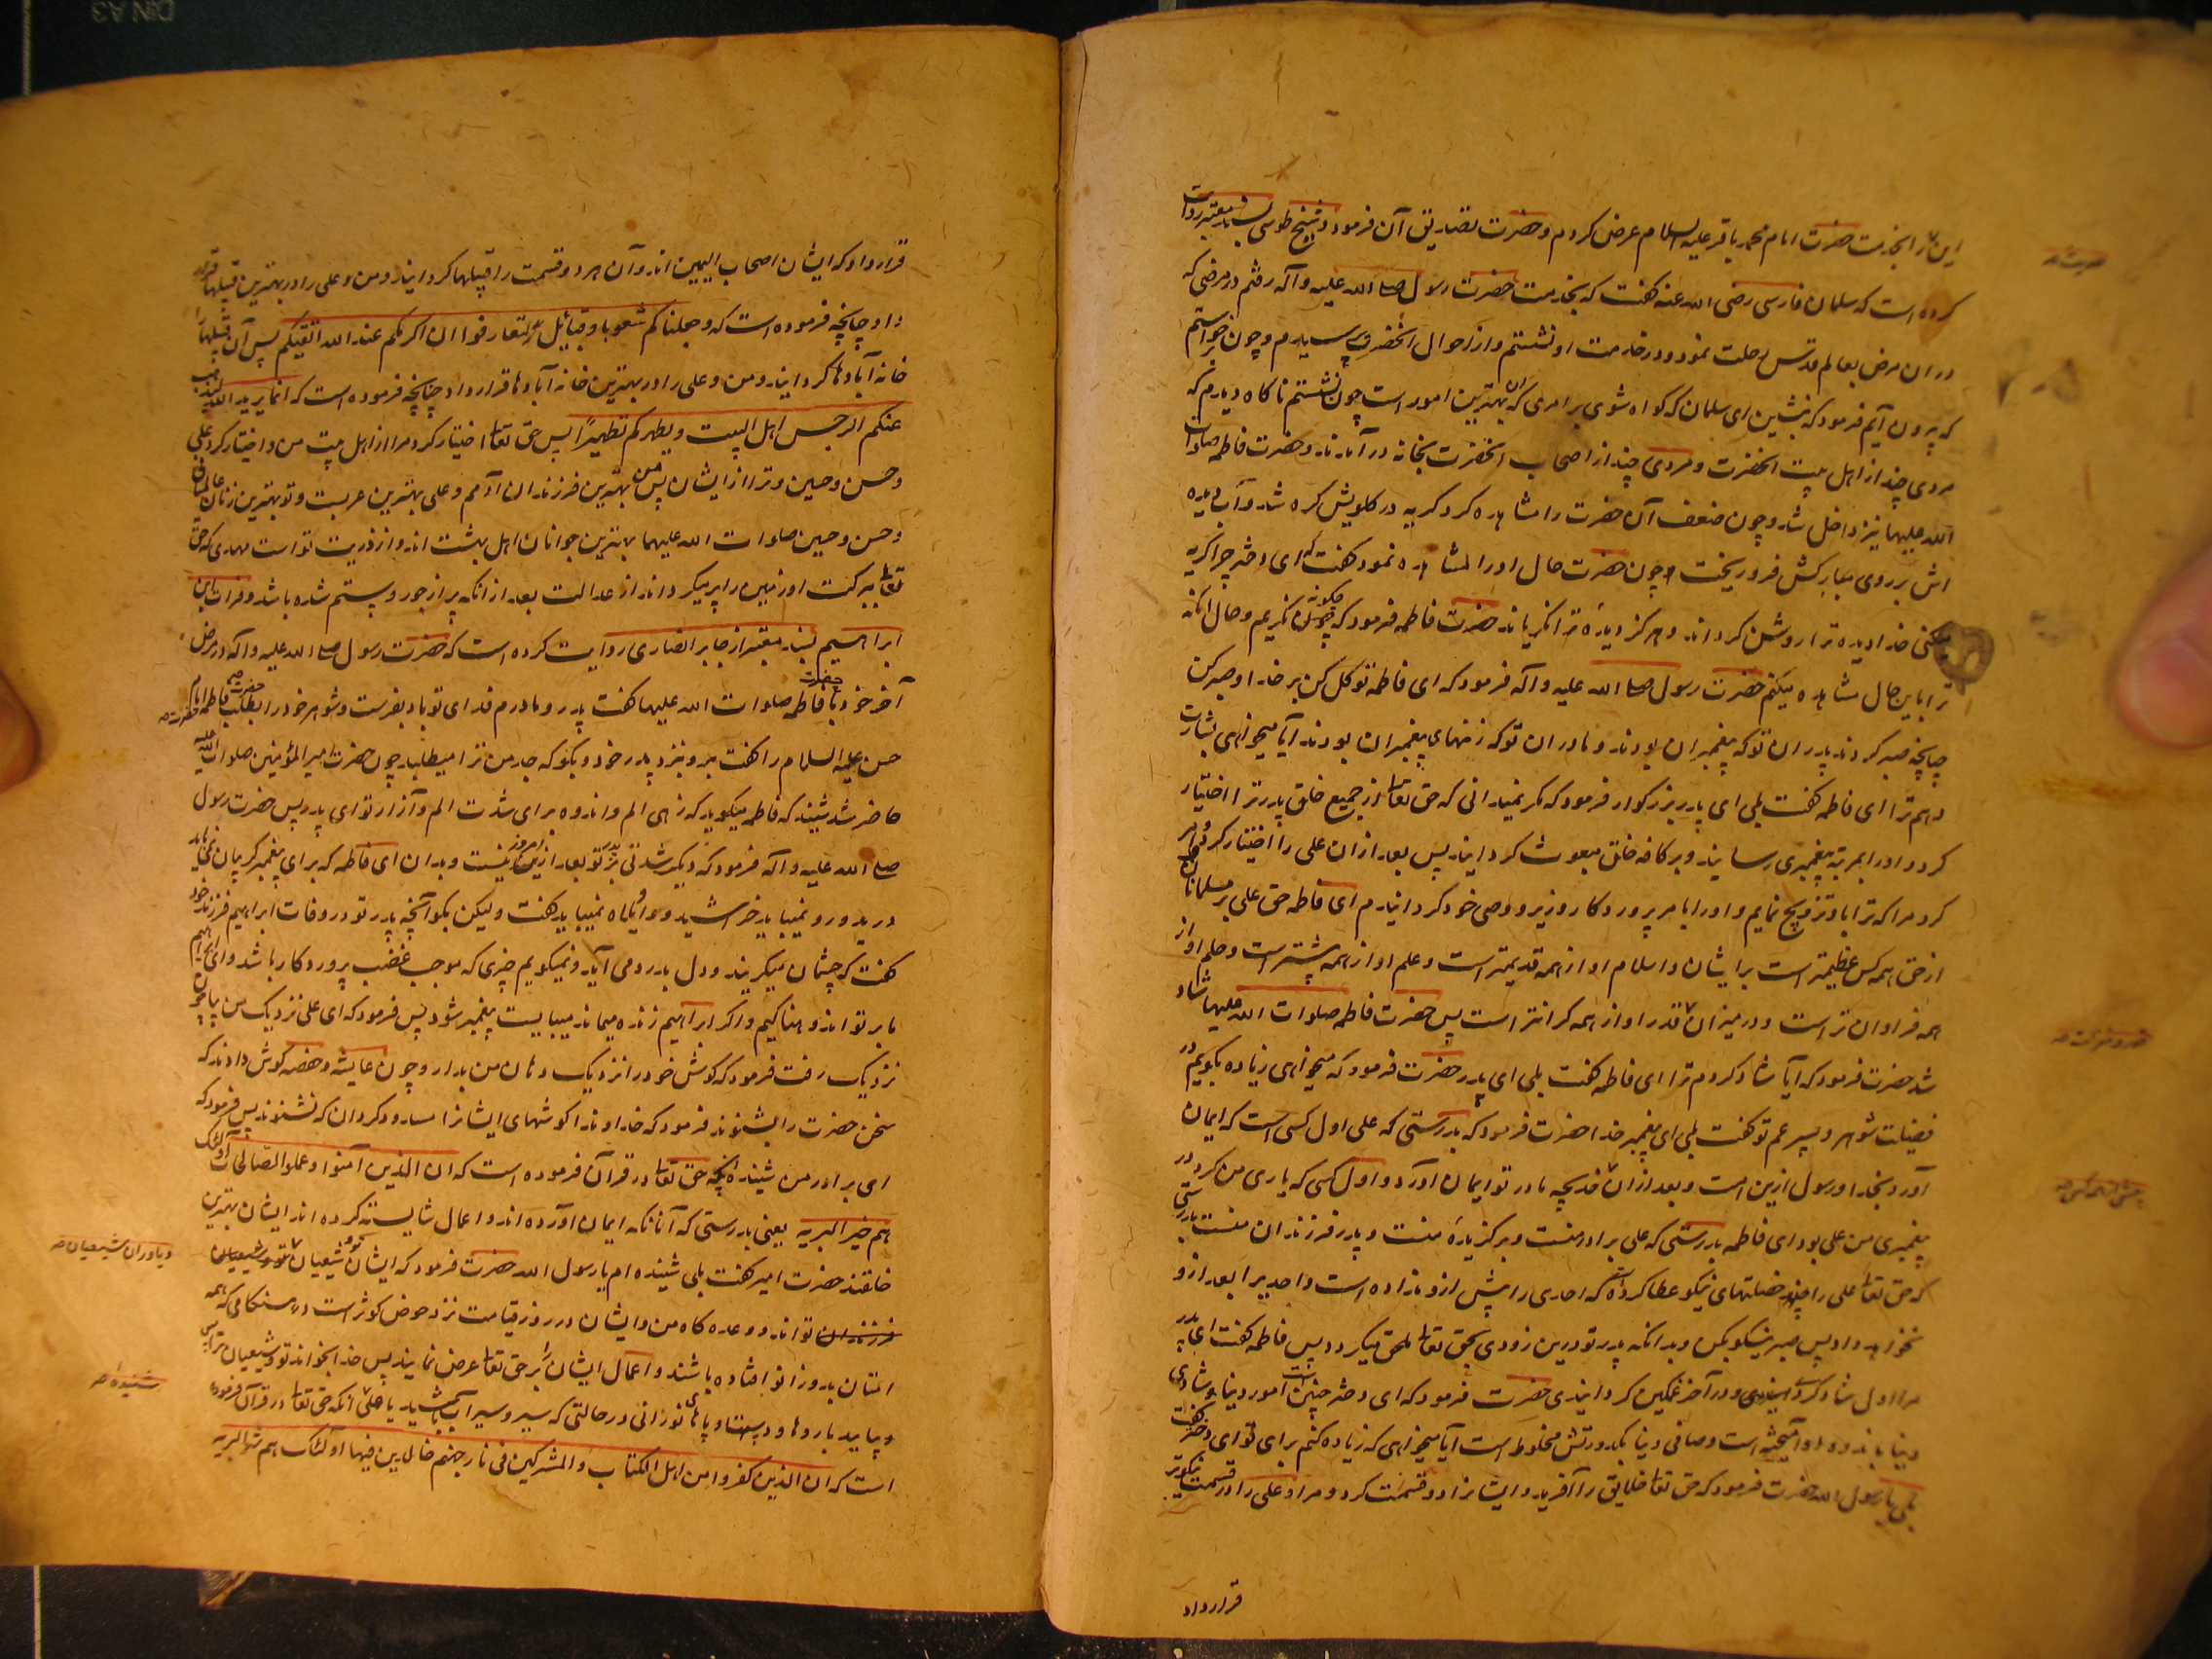 این را بخدمت حضرت امام محمد باقر علیه السلام عرض کردم و حضرت تصدیق آن فرمود و شیخ طوسی بسند معتبر روایت
کرده است که سلمان فارسی رضی الله عنه کفت که بخدمت حضرت رسول صلی الله علیه و آله رفتم در مرضی که
در ان مرض بعالم قدس رحلت نمود و در خدمت او نشستم و از احوال آنحضرت پرسیدم و چون خواستم
که بیرون آیم فرمود که بنشین ای سلمان که کواه شوی بر امری که آن بهترین امور است چون نشستم ناکاه دیدم که
مردی چند از اهل بیت آنحضرت و مردی چند از اصحاب آنحضرت بخانه در آمدند و حضرت فاطمه صلوات
الله علیها نیز داخل شد و چون ضعف آن حضرت را مشاهده کرد کریه در کلویش کره شد و آب دیده
اش بر روی مبارکش فرو ریخت و چون حضرت حال او را مشاهده نمود کفت که ای دختر چرا کریه
میکنی خدا دیده ترا روشن کرداند و هرکز دیده ترا نکریاند حضرت فاطمه فرمود که چکونه نکریم و حال آنکه
ترا باین حال مشاهده میکنم حضرت رسول صلی الله علیه و آله فرمود که ای فاطمه توکل کن بر خدا و صبر کن
چنانچه صبر کردند پدران تو که پیغمبران بودند و مادران تو که زنهای پیغمبران بودند آیا میخواهی بشارت
دهم ترا ای فاطمه کفت بلی ای پدر بزرکوار فرمود که مکر نمیدانی که حق تعا از جمیع خلق پدر ترا اختیار
کرد و او را بمرتبه پیغمبری رسانید و بر کافه خلق مبعوث کردانید پس بعد از ان علی را اختیار کرد و امر
کرد مرا که ترا باو تزویج نمایم و او را بامر پروردکار وزیر و وصی خود کردانیدم ای فاطمه حق علی بر مسلمانان
از حق همه کس عظیمتر است بر ایشان و اسلام او از همه قدیمتر است و علم او از همه بیشتر است و حلم او از
همه فراوان تر است و در میزان قدر او از همه کرانتر است پس حضرت فاطمه صلوات الله علیها شاد
شد حضرت فرمود که آیا شاد کردم ترا ای فاطمه کفت بلی ای پدر حضرت فرمود که میخواهی زیاده بکویم در
فضیلت شوهر و پسر عم تو کفت بلی ای پیغمبر خدا حضرت فرمود که بدرستی که علی اول کسی است که ایمان
آورد بخدا و رسول ازین امت و بعد از ان خدیجه مادر تو ایمان آورد و اول کسی که یاری من کرد در
پیغمبری من علی بود ای فاطمه بدرستی که علی برادر منست و برکزیده منست و پدر فرزندان منست بدرستی
که حق تعا علی را چند خصلتهای نیکو عطا کرده است که احدی را پیش از و نداده است و احدیرا بعد از و
نخواهد داد پس صبر نیکو بکن و بدانکه پدر تو درین زودی بحق تعا ملحق میکردد پس فاطمه کفت ای پدر
مرا اول شاد کردانیدی و در آخر غمکین کردانیدی حضرت فرمود که ای دختر چنین است امور دنیا و شادی
دنیا باندوه او آمیخته است و صافی دنیا بکدورتش مخلوط است آیا میخواهی که زیاده کنم برای تو ای دختر کفت
بلی یا رسول الله حضرت فرمود که حق تعا خلایق را آفرید و ایشانرا دو قسمت کرد و مرا و علی را در قسمت نیکوتر
قرار داد
قرار داد که ایشان اصحاب الیمین اند و آن هر دو قسمت را قبیلها کردانید و من و علی را در بهترین قبیلها قرار
داد چنانچه فرموده است که و جعلناکم شعوبا و قبائل لتعارفوا ان اکرمکم عند الله اتقیکم پس آن قبیلها را
خانه آبادها کردانید و من و علی را در بهترین خانه آبادها قرار داد چنانچه فرموده است که انما یرید الله لیذهب
عنکم الرجس اهل البیت و یطهرکم تطهیرًا پس حق تعا اختیار کرد مرا از اهل بیت من و اختیار کرد علی
و حسن و حسین و ترا از ایشان پس من بهترین فرزندان آدمم و علی بهترین عربست و تو بهترین زنان عالمیان
و حسن و حسین صلوات الله علیهما بهترین جوانان اهل بهشت اند و از ذریت تو است مهدی که حق
تعا ببرکت او زمین را پر میکرداند از عدالت بعد از آنکه پر از جور و ستم شده باشد و فرات ابن
ابراهیم بسند معتبر از جابر انصاری روایت کرده است که حضرت رسول صلی الله علیه و آله در مرض
آخر خود با حضرت فاطمه صلوات الله علیها کفت پدر و مادرم فدای تو باد بفرست و شوهر خود را بطلب فاطمه امام
حسن علیه السلام را کفت برو نزد پدر خود و بکو که جد من ترا میطلبد چون حضرت امیر المؤمنین صلوات الله علیه
حاضر شد شنید که فاطمه میکوید که زهی الم و اندوه برای شدت الم و آزار تو ای پدر پس حضرت رسول
صلی الله علیه و آله فرمود که دیکر شدتی بر پدر تو بعد از امروز نیست و بدان ای فاطمه که برای پیغمبر کریبان نمی باید
درید و رو نمیباید خراشید و واویلاه نمیباید کفت و لیکن بکو آنچه پدر تو در وفات ابراهیم فرزند خود
کفت که چشمان میکریند و دل بدرد می آید و نمیکویم چیزی که موجب غضب پروردکار باشد و ای ابراهیم
ما بر تو اندوهناکیم و اکر ابراهیم زنده میماند میبایست پیغمبر شود پس فرمود که ای علی نزدیک من بیا چون
نزدیک رفت فرمود که کوش خود را نزدیک دهان من بدار و چون عایشه و حفصه کوش دادند که
سخن حضرت را بشنوند فرمود که خداوندا کوشهای ایشانرا مسدود کردان که نشنوند پس فرمود که
ای برادر من شنیده آنچه حق تعا در قرآن فرموده است که ان الذین آمنوا و عملوا الصالحات اولئک
هم خیر البریه یعنی بدرستی که آنانکه ایمان آورده اند و اعمال شایسته کرده اند ایشان بهترین
خلقند حضرت امیر کفت بلی شنیده ام یا رسول الله حضرت فرمود که ایشان شیعیان تو و شیعیان
و یاوران شیعیان
فرزندان تو اند و وعده کاه من و ایشان در روز قیامت نزد حوض کوثر است در هنکامی که همه
امتان بدو زانو افتاده باشند و اعمال ایشان را بر حق تعا عرض نمایند پس خدا بخواند تو و شیعیان ترا پس
شنیده
و بیایید با روها و دستها و پاهای نورانی در حالتی که سیر و سیراب باشید یا علی آنکه حق تعا در قرآن فرموده
است که ان الذین کفروا من اهل الکتاب و المشرکین فی نار جهنم خالدین فیها اولئک هم شر البریه